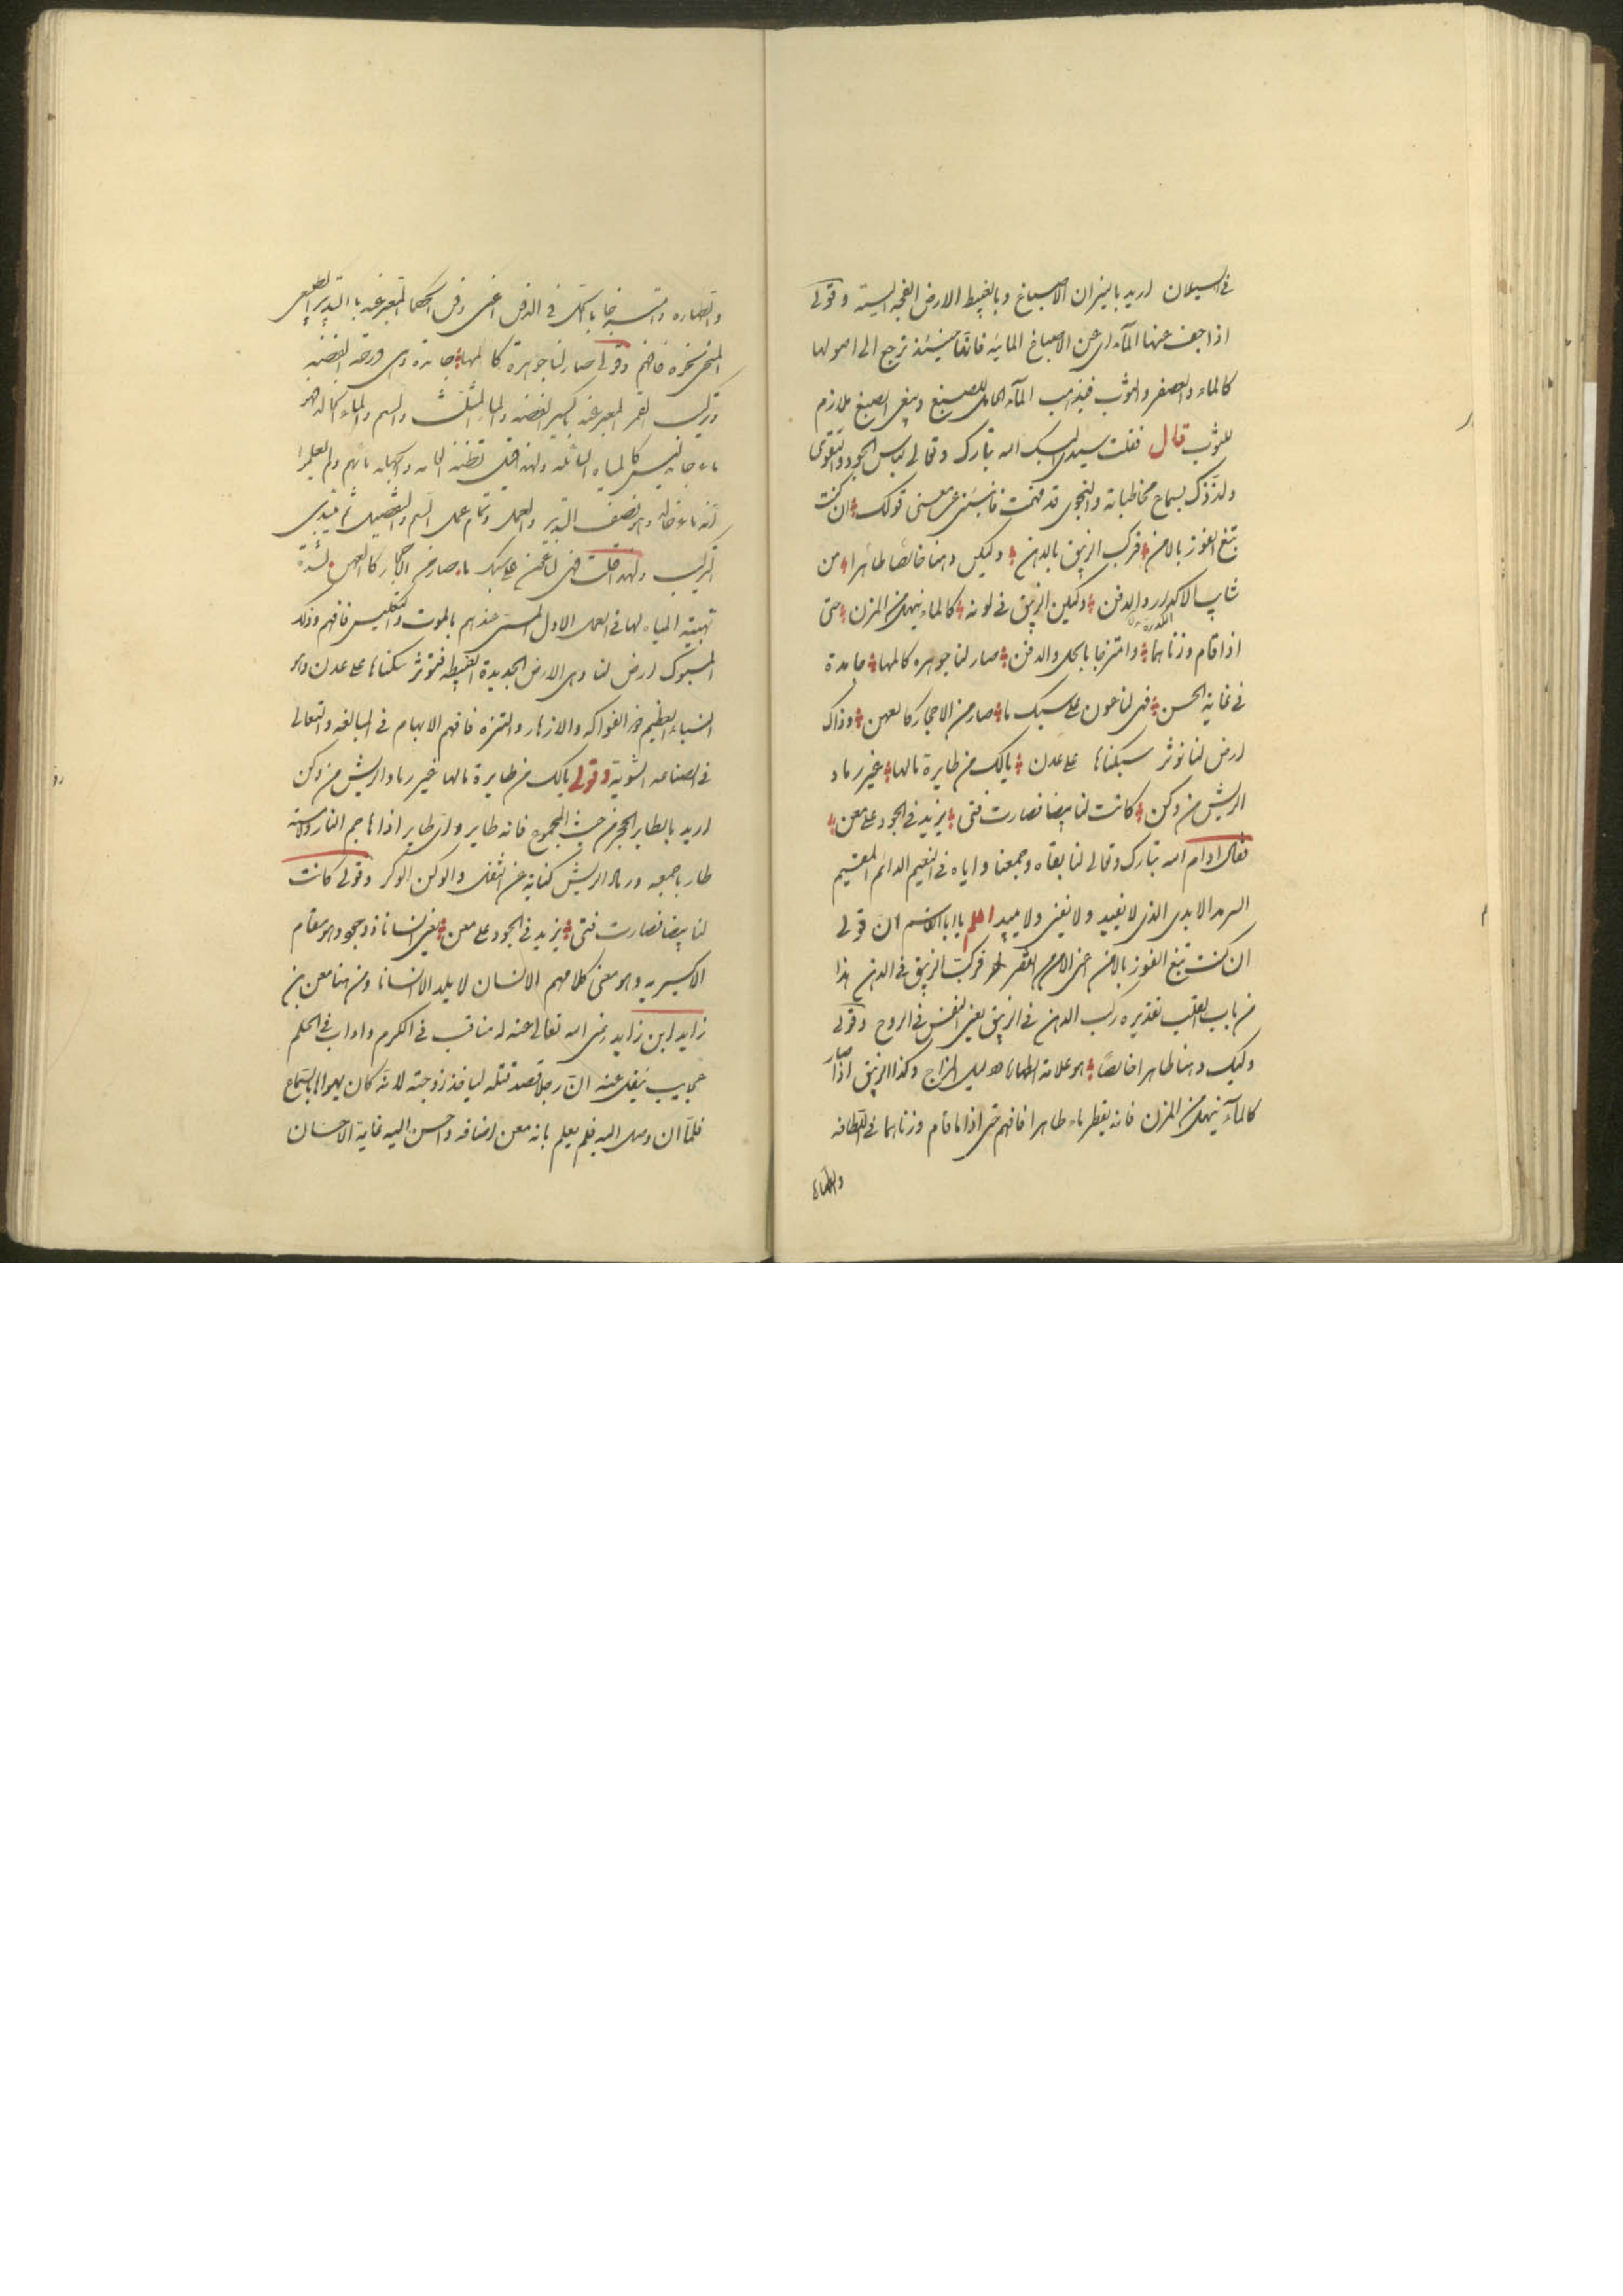 في السيلان اريد بالنيران الاصباغ وبالغبيط الارض الفجه اليبسة وقولي
اذا جف عنها المآء اي عن الاصباغ المائيه فانها حينئذ ترجع الى اصولها
كالماء والعصفر والثوب فيذهب المآء الحامل للصبغ ويبقى الصبغ ملازم
للثوب قال فقلت سيدي البسك الله تبارك وتعالى لباس الجود والتقوى
ولذذك بسماع مخاطباته والنجوى قد فهمت فانبئني عن معنى قولك ان كنت
تبغ الفوز بالامن فركب الزيبق بالدهن وليكن دهنا خالصا طاهرا من
شايب الاكدار والدفن وليكن الزيبق في لونه كالماء ينهل من المزن حتى
اذا قام وزناهما وامتزجا بالحل والدفن صار لنا جوهره كالمها جامدة
في غاية الحسن فهي لنا عون على سبك ما صار من الاحجار كالعهن وذاك
ارض لنا نوثر سكناها على عدن يالك من طايرة مالها غير رماد
الريش من وكن كانت لنا بيضا فصارت فتى يزيد في الجود على معن
فقال ادام الله تبارك وتعالى لنا بقاه وجمعنا واياه في النعيم الدائم المقيم
السرمد الابدى الذى لا يفيد ولا يفنى ولا يبيد اعلم يا ابا القاسم ان قولي
ان كنت تبغ الفوز بالامن اعنى الامن من الفقر فركب الزيبق في الدهن هذا
من باب القلب تقديره ركب الدهن في الزيبق يعنى النفس في الروح وقولي
وليك دهنا طاهرا خالصا هو علامة الطهارة ودليل المزاج وكذا الزيبق اذا صار
كالمآء ينهل من المزن فانه يقطر ماء طاهرا فافهم حتى اذا ما قام وزناهما في اللطافه
والطهاره
والطهاره وامتزجا بالحل في الدفن اعنى دفن الحكما المعبر عنه بالتدبير الطبيعى
فافهم وقولي صار لنا جوهرة كالمها جامدة وهى ورقة الفضه
وتركيب القمر المعبر عنه باكسير الفضه والماء المثلث والسم والماء الخالد فهو
ماء جامد ليس كالمياه السائله ولهذا قيل تظنه العامه والجهله بانهم ولم يعلموا
انه ماء خالد وهو نصف التدبير والعمل وتمام عمل السم والتفصيل ثم يبتدى
التركيب ولهذا قلت فهى لنا عون على سبك ما صار من الاحجار كالعهن لشدة
تهبيته المياه لها في العمل الاول المسمى عندهم بالموت والتكليس فافهم وذلك
المسبوك ارض لنا وهى الارض الجديدة الغبيطه فنوثر سكناها على عدن
العظيم من الفواكه والازهار والتنزه فافهم الابهام في المبالغه والتعالى
في الصناعه الشعرية وقولي يالك من طايرة مالها غير رماد الريش من وكن
اريد بالطاير الحجر من حيث المجموع فانه طاير واى طاير اذا هاجم النار ولامسته
طار باجمعه ورماد الريش كناية عن الثفل والوكن الوكر وقولي كانت
لنا بيضا فصارت فتى يزيد في الجود على معن يعنى انسانا ذو جود وهو مقام
الاكسيريه وهو معنى كلامهم الانسان لا يلد الا انسانا ومن هنا معن بن
زايد ابن زايد رضى الله تعالى عنه له مناقب في الكرم واداب في الحلم
عجايب ينقل عنه ان رجلا قصد قتله لياخذ زوجته لانه كان يهواها بالسماع
فلما ان وصل اليه فلم يعلم بانه معن اضافه واحسن اليه غاية الاحسان